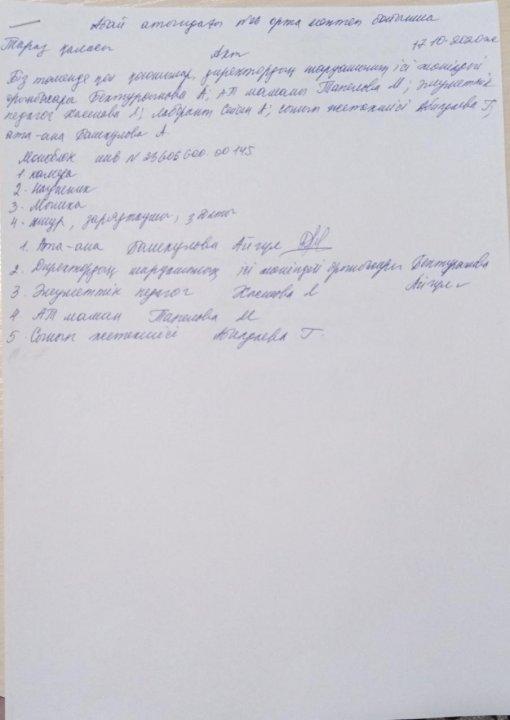 Абай атындағы №26 орта мектеп бойынша
Тараз қаласы
Акт
17.10.2020ж
Біз төменде қол қоюшылар, директордың шаруашылық ісі жөніндегі
орынбасары Бектурганова А; АТ маманы Тапелова М; Әлеуметтік
педагог Хасенова Л; Лаборант А; сынып жетекшісі Абилдаева Г;
ата-ана Башкулова А
Моноблок инв N 23606600.00145
1. камера
2. Наушник
3. Мышка
4. шнур, зарядкащы,
1. Ата-ана Башкулова Айгул
2. Директордың шаруашылық ісі жөніндегі орынбасары Бектурганова
Айгул
3 Әлеуметтік педагог Хасенова Л
4 АТ маман Тапелова М
5 Сынып жетекшісі Абилдаева Г.